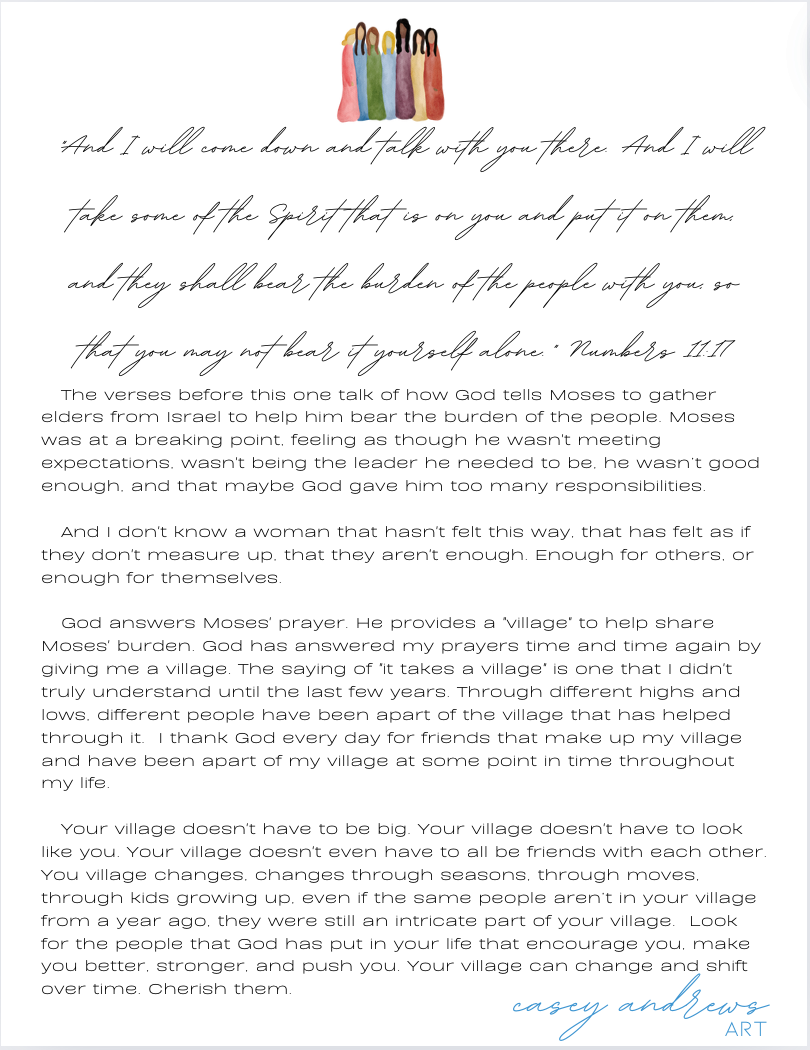 "And I will come down and talk with you there. And I will
take some of the Spirit that is on you and put it on them,
and they shall bear the burden of the people with you, so
that you may not bear it yourself alone." Numbers 11:17
The verses before this one talk of how God tells Moses to gather
elders from Israel to help him bear the burden of the people. Moses
was at a breaking point, feeling as though he wasn't meeting
expectations, wasn't being the leader he needed to be, he wasn't good
enough, and that maybe God gave him too many responsibilities.
And I don't know a woman that hasn't felt this way, that has felt as if
they don't measure up, that they aren't enough. Enough for others, or
enough for themselves.
God answers Moses' prayer. He provides a "village" to help share
Moses' burden. God has answered my prayers time and time again by
giving me a village. The saying of "it takes a village" is one that I didn't
truly understand until the last few years. Through different highs and
lows, different people have been apart of the village that has helped
through it.  I thank God every day for friends that make up my village
and have been apart of my village at some point in time throughout
my life.
Your village doesn't have to be big. Your village doesn't have to look
like you. Your village doesn't even have to all be friends with each other.
You village changes, changes through seasons, through moves,
through kids growing up, even if the same people aren't in your village
from a year ago, they were still an intricate part of your village.  Look
for the people that God has put in your life that encourage you, make
you better, stronger, and push you. Your village can change and shift
over time. Cherish them.
casey andrews
ART